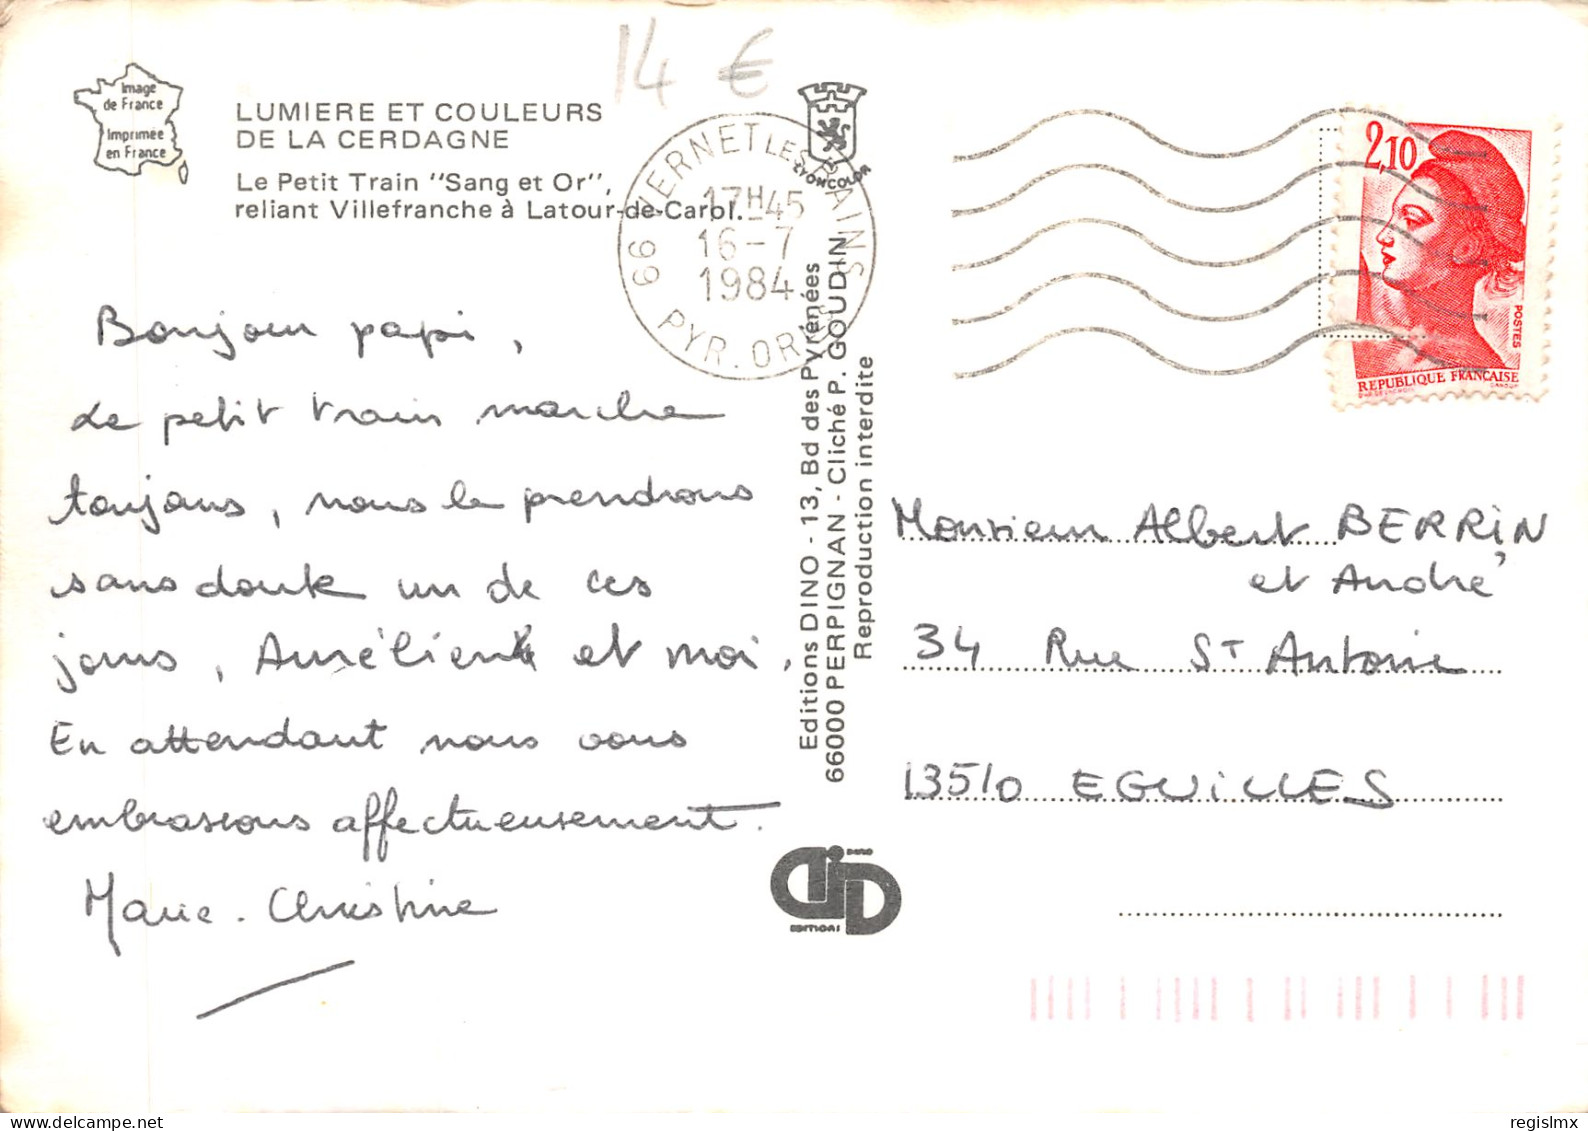 14 €
Image
de France
Imprimée
en France
LUMIERE ET COULEURS
DE LA CERDAGNE
Le Petit Train "Sang et Or",
reliant Villefranche à Latour-de-Carol.
66 VERNET LES BAINS
17H45
16-7
1984
PYR. OR
LYONCOLOR
2,10
POSTES
REPUBLIQUE FRANÇAISE
Bonjour papi,
Le petit train marche
toujours, nous le prendrons
sans doute un de ces
jours, Aurélien et moi.
En attendant nous vous
embrassons affectueusement.
Marie-Christine
Editions DINO - 13, Bd des Pyrénées
66000 PERPIGNAN - Cliché P. GOUDIN
Reproduction interdite
DINO
EDITIONS
Monsieur Albert BERRIN
et André
34 Rue St Antoine
13510 EGUILLES
regislmx